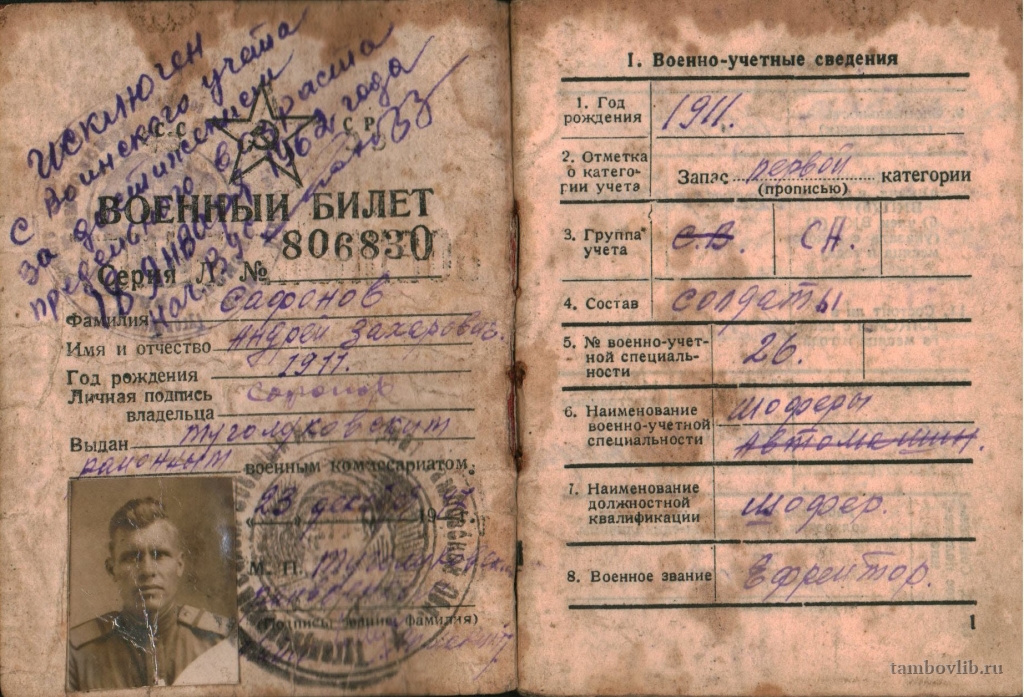 Исключен
с воинского учёта
за достижением
предельного возраста
1 января 1962 года
СС СР
ВОЕННЫЙ БИЛЕТ
Серия Л. № 806830
Фамилия Сафонов
Имя и отчество Андрей Захарович.
Год рождения 1911.
Личная подпись
владельца
Выдан Туголуковским
районным военным комиссариатом
"23" декабря 19
М. П. Туголуковский
(Подпись, звание, фамилия)
I. Военно-учетные сведения
1. Год
рождения 1911.
2. Отметка
о катего-
рии учета Запас первой категории
(прописью)
3. Группа
учета С.В. СА.
4. Состав солдаты
5. № военно-учет-
ной специаль-
ности 26.
6. Наименование
военно-учетной
специальности шоферы
автомашин.
7. Наименование
должностной
квалификации шофер.
8. Военное звание Ефрейтор.
1
tambovlib.ru